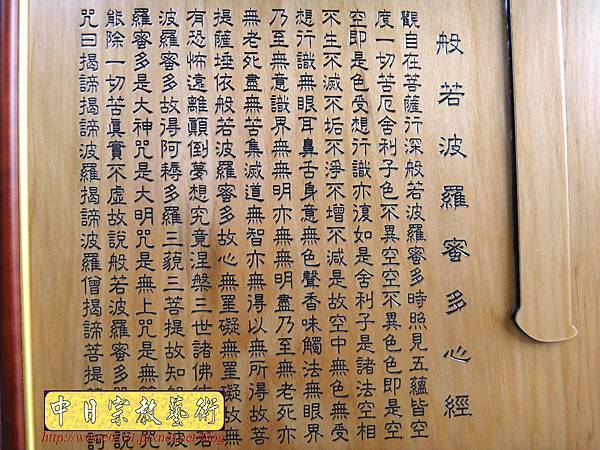 般若波羅蜜多心經
觀自在菩薩行深般若波羅蜜多時照見五蘊皆空
度一切苦厄舍利子色不異空空不異色色即是空
空即是色受想行識亦復如是舍利子是諸法空相
不生不滅不垢不淨不增不減是故空中無色無受
想行識無眼耳鼻舌身意無色聲香味觸法無眼界
乃至無意識界無無明亦無無明盡乃至無老死亦
無老死盡無苦集滅道無智亦無得以無所得故菩
提薩埵依般若波羅蜜多故心無罣礙無罣礙故無
有恐怖遠離顛倒夢想究竟涅槃三世諸佛若
波羅蜜多故得阿耨多羅三藐三菩提故知波
羅蜜多是大神咒是大明咒是無上咒是無咒
能除一切苦真實不虛故說般若波羅蜜多說
咒曰揭諦揭諦波羅揭諦波羅僧揭諦菩提訶
中日宗教藝術